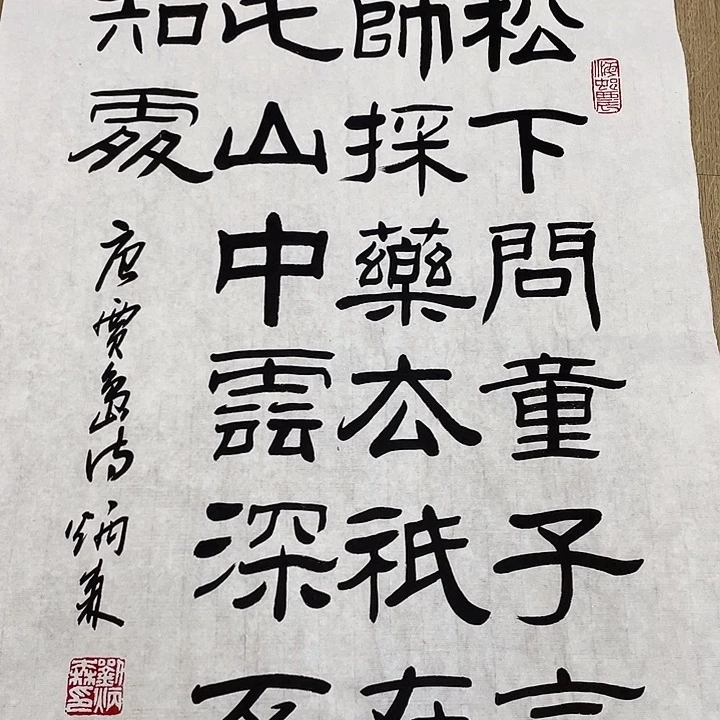 松下問童子言
師採藥去祇在
此山中雲深不
知處
唐賈島詩炳森
劉炳森印